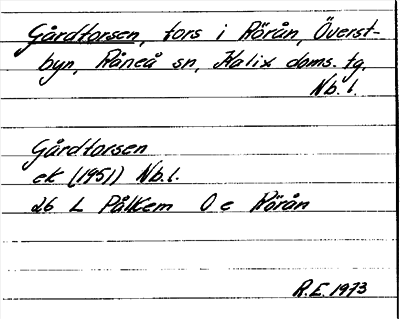 Gårdtorsen, fors i Rörån, Överst-
byn, Råneå sn, Kalix doms. tg.
Nb. l.
Gårdforsen
ek (1951) Nb.l.
26 L Pålkem O e Rörån
R.E. 1973